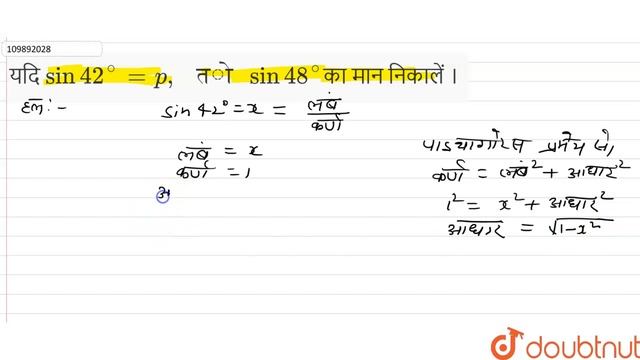 109892028
यदि sin 42° = p, तो sin 48° का मान निकालें ।
हल:-
sin 42° = x = लंब / कर्ण
लंब = x
कर्ण = 1
पाइथागोरस प्रमेय से,
कर्ण² = लंब² + आधार²
1² = x² + आधार²
आधार = √1-x²
doubtnut